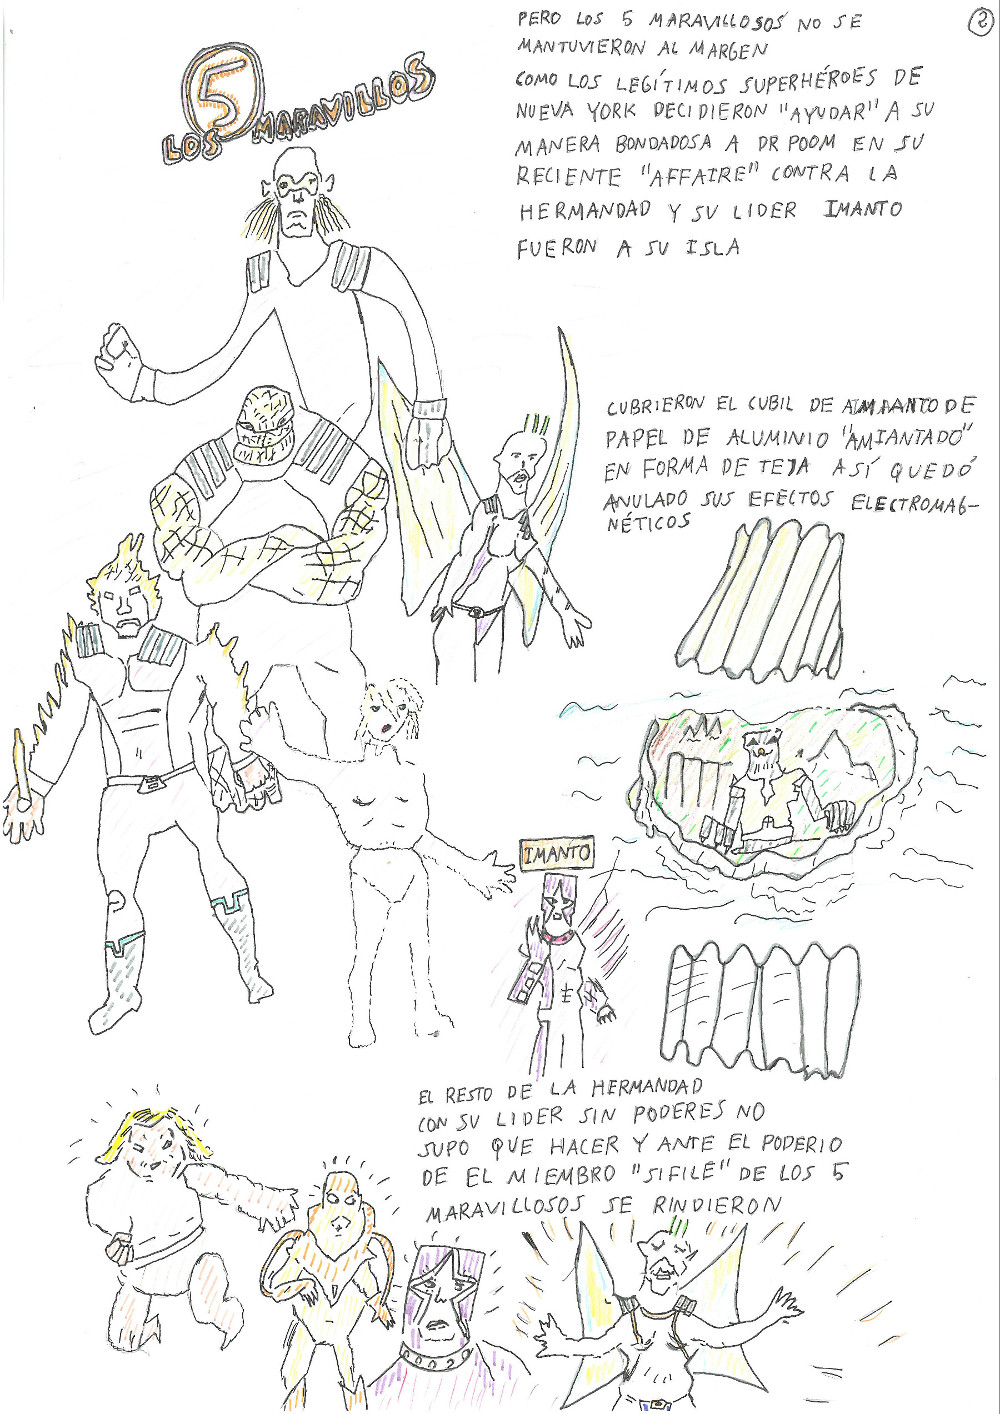 2
5
LOS MARAVILLOS
PERO LOS 5 MARAVILLOSOS NO SE
MANTUVIERON AL MARGEN
COMO LOS LEGÍTIMOS SUPERHÉROES DE
NUEVA YORK DECIDIERON "AYUDAR" A SU
MANERA BONDADOSA A DR POOM EN SU
RECIENTE "AFFAIRE" CONTRA LA
HERMANDAD Y SU LIDER IMANTO
FUERON A SU ISLA
CUBRIERON EL CUBIL DE DE
PAPEL DE ALUMINIO "AMIANTADO"
EN FORMA DE TEJA ASÍ QUEDÓ
ANULADO SUS EFECTOS ELECTROMAG-
NÉTICOS
IMANTO
EL RESTO DE LA HERMANDAD
CON SU LIDER SIN PODERES NO
SUPO QUE HACER Y ANTE EL PODERIO
DE EL MIEMBRO "SIFILE" DE LOS 5
MARAVILLOSOS SE RINDIERON